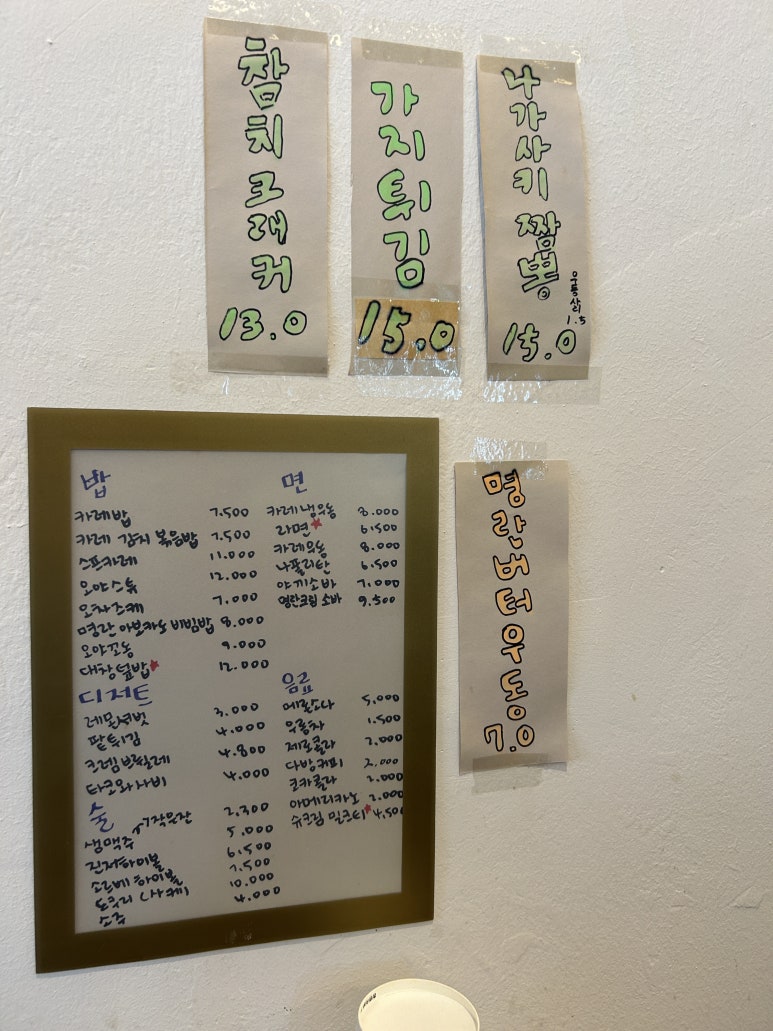 참치크래커
13.0
가지튀김
15.0
나가사키 짬뽕
우동사리
1.5
15.0
명란버터우동
7.0
밥
카레밥 7.500
카레 김치 볶음밥 7.500
스프카레 11.000
오야스튜 12.000
오차즈케 7.000
명란 아보카도 비빔밥 8.000
오야꼬동 9.000
대창덮밥★ 12.000
면
카레냉우동 8.000
라면★ 6.500
카레우동 8.000
나폴리탄 6.500
야끼소바 7.000
명란크림 소바 9.500
디저트
레몬셔벗 3.000
팥튀김 4.000
크렘브륄레 4.800
타코와사비 4.000
술
생맥주 작은잔 2.300
5.000
진저하이볼 6.500
소르베 하이볼 7.500
도쿠리 (사케) 10.000
소주 4.000
음료
메론소다 5.000
우롱차 1.500
제로콜라 2.000
다방커피 2.000
코카콜라 2.000
아메리카노 2.000
슈크림 밀크티★ 4.500